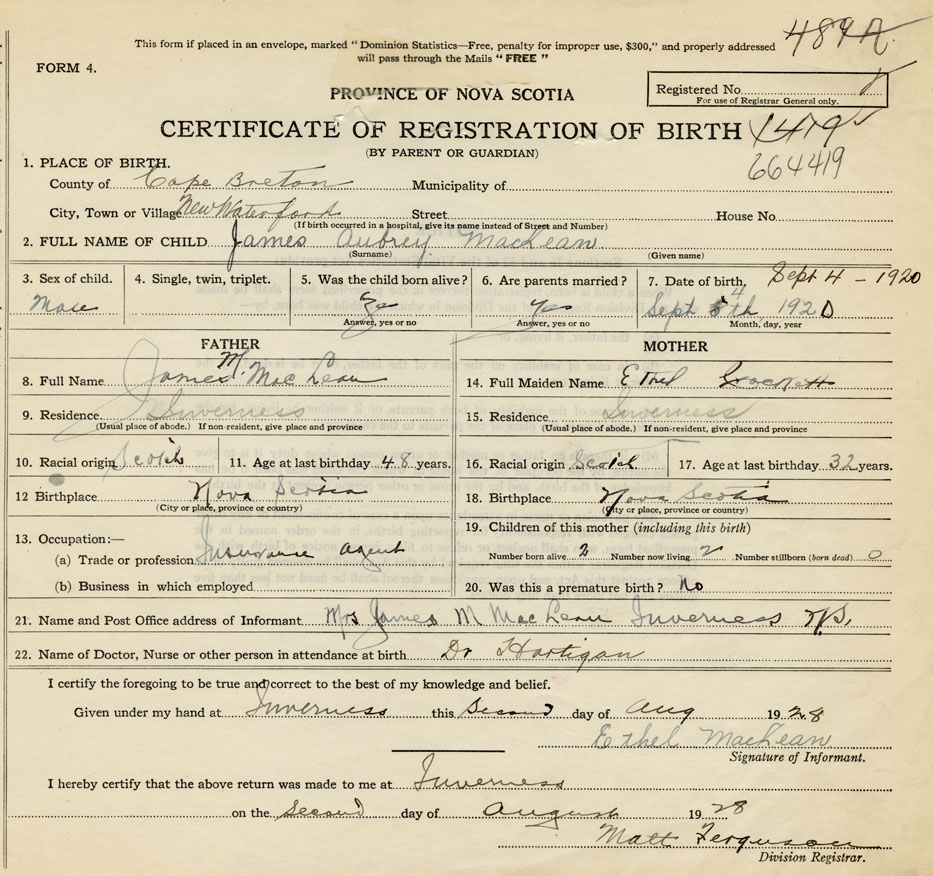 484A
This form if placed in an envelope, marked "Dominion Statistics—Free, penalty for improper use, $300," and properly addressed
will pass through the Mails "FREE"
FORM 4.
Registered No.
For use of Registrar General only.
PROVINCE OF NOVA SCOTIA
CERTIFICATE OF REGISTRATION OF BIRTH 1419
(BY PARENT OR GUARDIAN)
664419
1. PLACE OF BIRTH.
County of Cape Breton Municipality of
City, Town or Village New Waterford Street House No.
(If birth occurred in a hospital, give its name instead of Street and Number)
2. FULL NAME OF CHILD James Aubrey MacLean
(Surname) (Given name)
3. Sex of child. 4. Single, twin, triplet. 5. Was the child born alive? 6. Are parents married? 7. Date of birth. Sept 4 - 1920
Male Yes Yes Sept 4 th, 1920
Answer, yes or no Answer, yes or no Month, day, year
FATHER MOTHER
8. Full Name James M. MacLean 14. Full Maiden Name Ethel
9. Residence. Inverness 15. Residence Inverness
(Usual place of abode.) If non-resident, give place and province (Usual place of abode.) If non-resident, give place and province
10. Racial origin Scotch 11. Age at last birthday 48 years. 16. Racial origin Scotch 17. Age at last birthday 32 years.
12 Birthplace Nova Scotia 18. Birthplace Nova Scotia
(City or place, province or country) (City or place, province or country)
19. Children of this mother (including this birth)
13. Occupation:—
(a) Trade or profession Insurance agent Number born alive Number now living 2 Number stillborn (born dead) 0
(b) Business in which employed 20. Was this a premature birth? No
21. Name and Post Office address of Informant Mrs James M MacLean Inverness N.S.
22. Name of Doctor, Nurse or other person in attendance at birth Dr Hartigan
I certify the foregoing to be true and correct to the best of my knowledge and belief.
Given under my hand at Inverness this Second day of Aug 1928
Ethel MacLean
Signature of Informant.
I hereby certify that the above return was made to me at Inverness
on the Second day of August 1928
Matt Ferguson
Division Registrar.